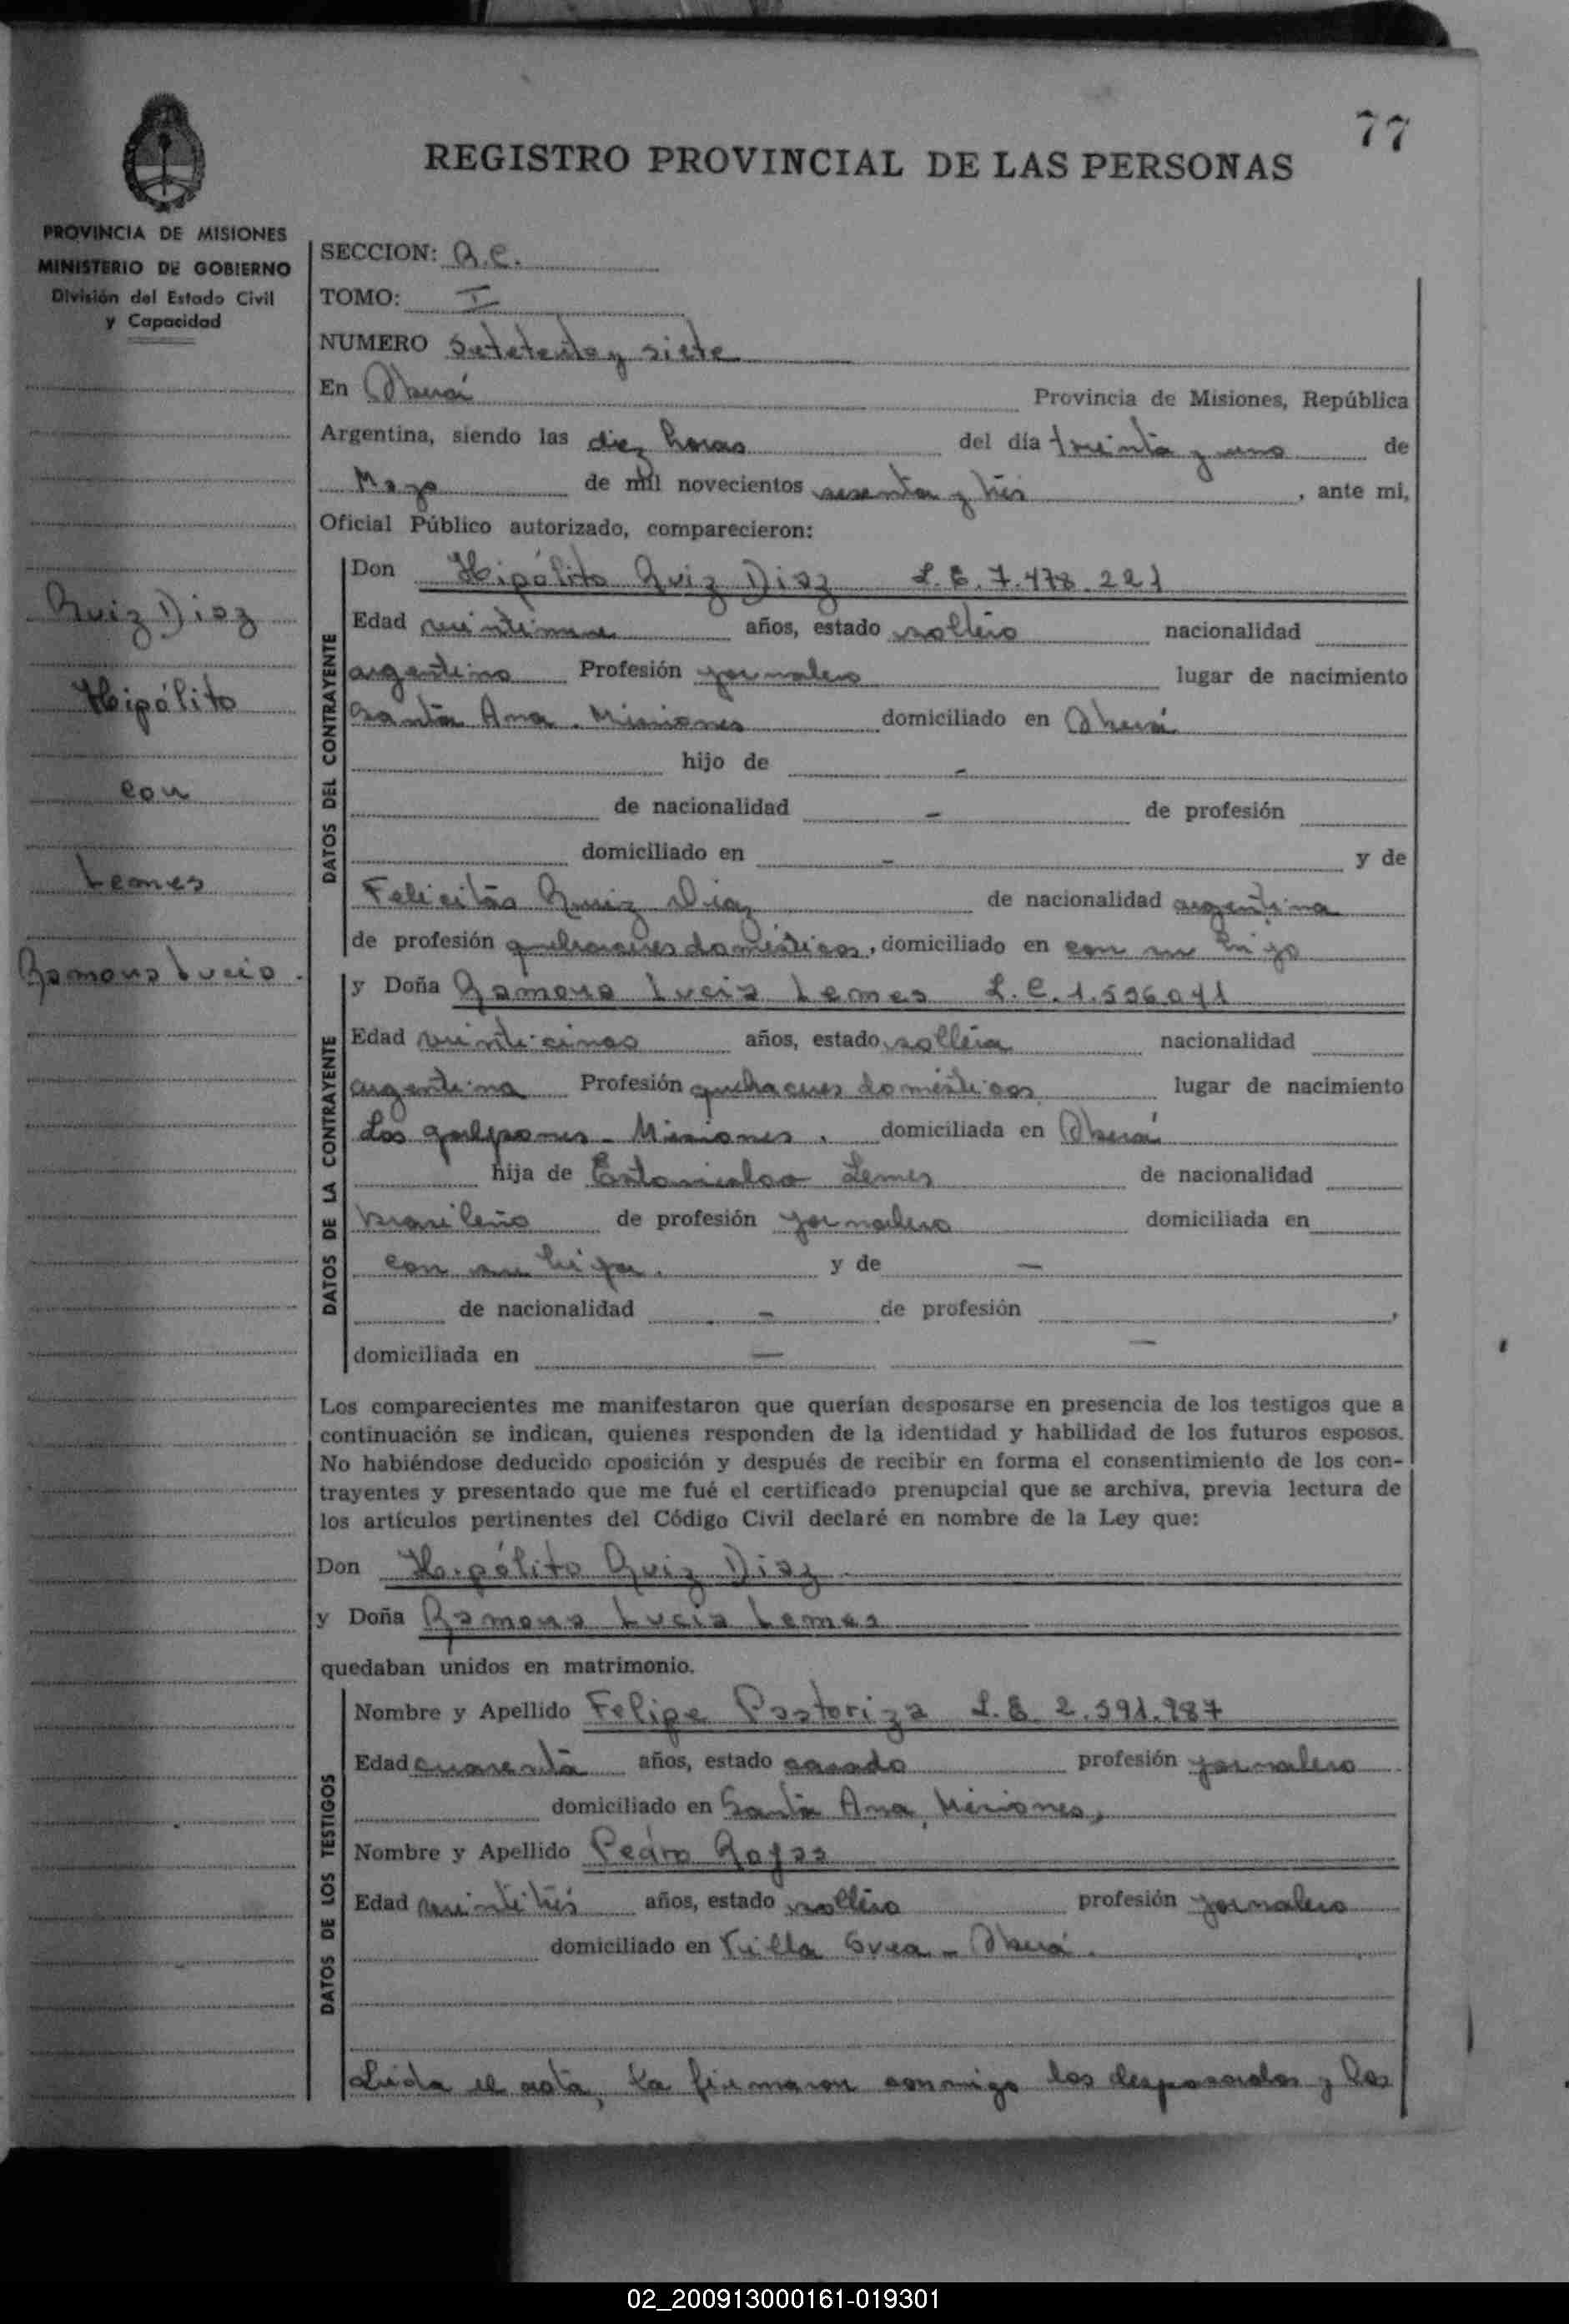 77
REGISTRO PROVINCIAL DE LAS PERSONAS
PROVINCIA DE MISIONES
MINISTERIO DE GOBIERNO
División del Estado Civil
y Capacidad
Ruiz Diaz
Hipólito
con
Lemes
Ramona Lucia.
SECCION:
TOMO: I
NUMERO Setetenta y siete
En Oberá Provincia de Misiones, República
Argentina, siendo las diez horas del día treinta y uno de
Mayo de mil novecientos sesenta y tres, ante mi,
Oficial Público autorizado, comparecieron:
DATOS DEL CONTRAYENTE
Don Hipólito Ruiz Diaz L.E. 7.478.221
Edad años, estado soltero nacionalidad
argentino Profesión jornalero lugar de nacimiento
Santa Ana. Misiones domiciliado en Oberá
hijo de -
de nacionalidad - de profesión
domiciliado en - y de
Felicitas Ruiz Diaz de nacionalidad argentina
de profesión quehaceres domésticos, domiciliado en con su hijo
DATOS DE LA CONTRAYENTE
y Doña Ramona Lucia Lemes L.C.
Edad veinticinco años, estado soltera nacionalidad
argentina Profesión quehaceres domésticos lugar de nacimiento
Los galpones - Misiones. domiciliada en Oberá
hija de Estanislao Lemes de nacionalidad
brasileño de profesión jornalero domiciliada en
con su hija. y de —
de nacionalidad - de profesión ,
domiciliada en — —
Los comparecientes me manifestaron que querían desposarse en presencia de los testigos que a
continuación se indican, quienes responden de la identidad y habilidad de los futuros esposos.
No habiéndose deducido oposición y después de recibir en forma el consentimiento de los con-
trayentes y presentado que me fué el certificado prenupcial que se archiva, previa lectura de
los artículos pertinentes del Código Civil declaré en nombre de la Ley que:
Don Hipólito Ruiz Diaz
y Doña Ramona Lucia Lemes
quedaban unidos en matrimonio.
DATOS DE LOS TESTIGOS
Nombre y Apellido Felipe Pastoriza L.E.
Edad cuarenta años, estado casado profesión jornalero
domiciliado en Santa Ana, Misiones,
Nombre y Apellido Pedro Rojas
Edad veintitrés años, estado soltero profesión jornalero
domiciliado en Villa Svea - Oberá.
Leida el acta, la firmaron conmigo los desposados y los
02_200913000161-019301